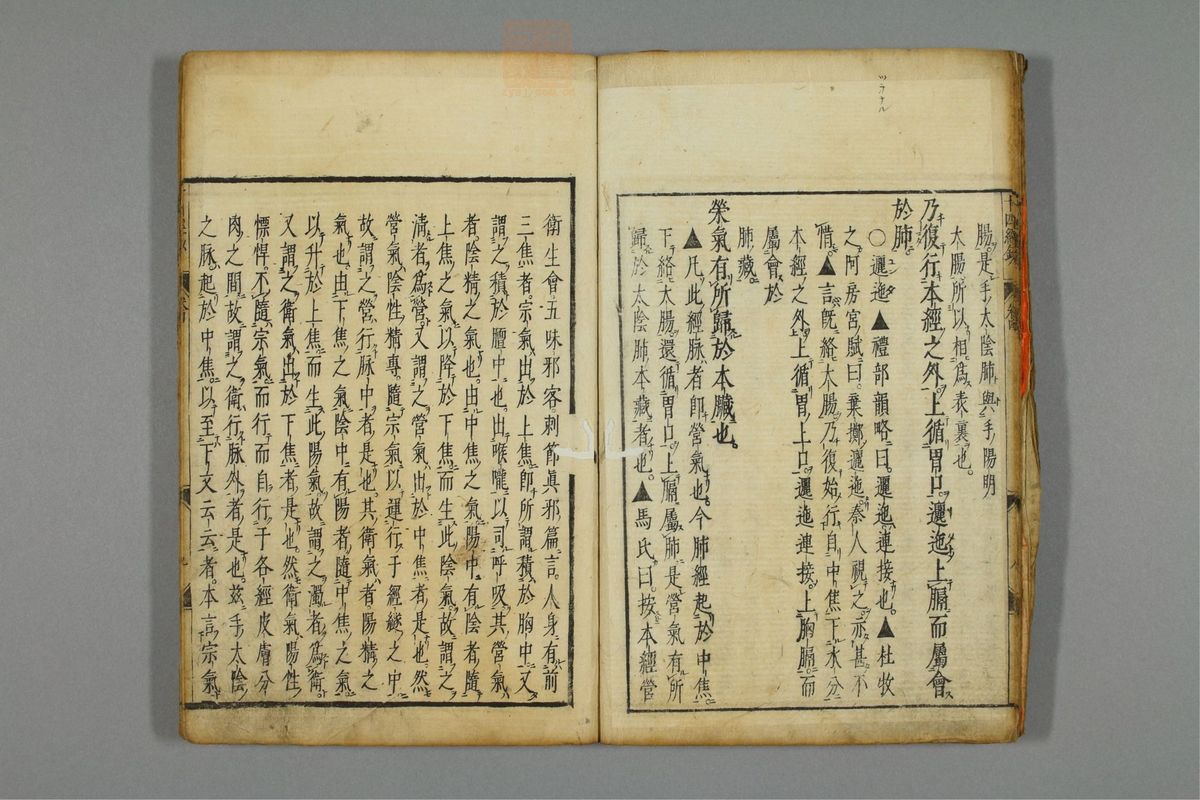 ツラナル
腸。是手太陰肺與手陽明
大腸所以相為表裏也。
乃復行本經之外。上循胃口。邐迤上膈而屬會
於肺。
○邐迤▲禮部韻略曰。邐迤。連接也。▲杜牧
之阿房宮賦曰。棄擲邐迤。秦人視之。亦甚不
惜。▲言既絡大腸。乃復始行。自中焦下水分
本經之外。上循胃上口。邐迤連接。上胸膈。而
屬會於
肺藏
榮氣有所歸於本臟也。
▲凡此經脉者即營氣也。今肺經起於中焦
下絡大腸還循胃口。上膈屬肺。是營氣有所
歸於太陰肺本藏者也。▲馬氏曰。按本經營
衛生會五味邪客。刺節眞邪篇言。人身有前
三焦者。宗氣出於上焦。即所謂積於胸中。又
謂之積於膻中也。出喉嚨以司呼吸。其營氣
者陰精之氣也。由中焦之氣。陽中有陰者。隨
上焦之氣。以降於下焦而生。此陰氣。故謂之
清者為營。又謂之營氣。出於中焦者是也。然
營氣陰性精專。隨宗氣以運行于經縧之中。
故謂之營行脉中者是也。其衛氣者陽精之
氣也。由下焦之氣。陰中有陽者。隨中焦之氣
以升於上焦而生。此陽氣。故謂之濁者為衛。
又謂之衛氣出於下焦者是也。然衛氣陽性
慓悍。不隨宗氣而行。而自行于各經皮膚分
肉之間。故謂之衛行脉外者是也。茲手太陰
之脉。起於中焦。以至下文云云者。本言宗氣